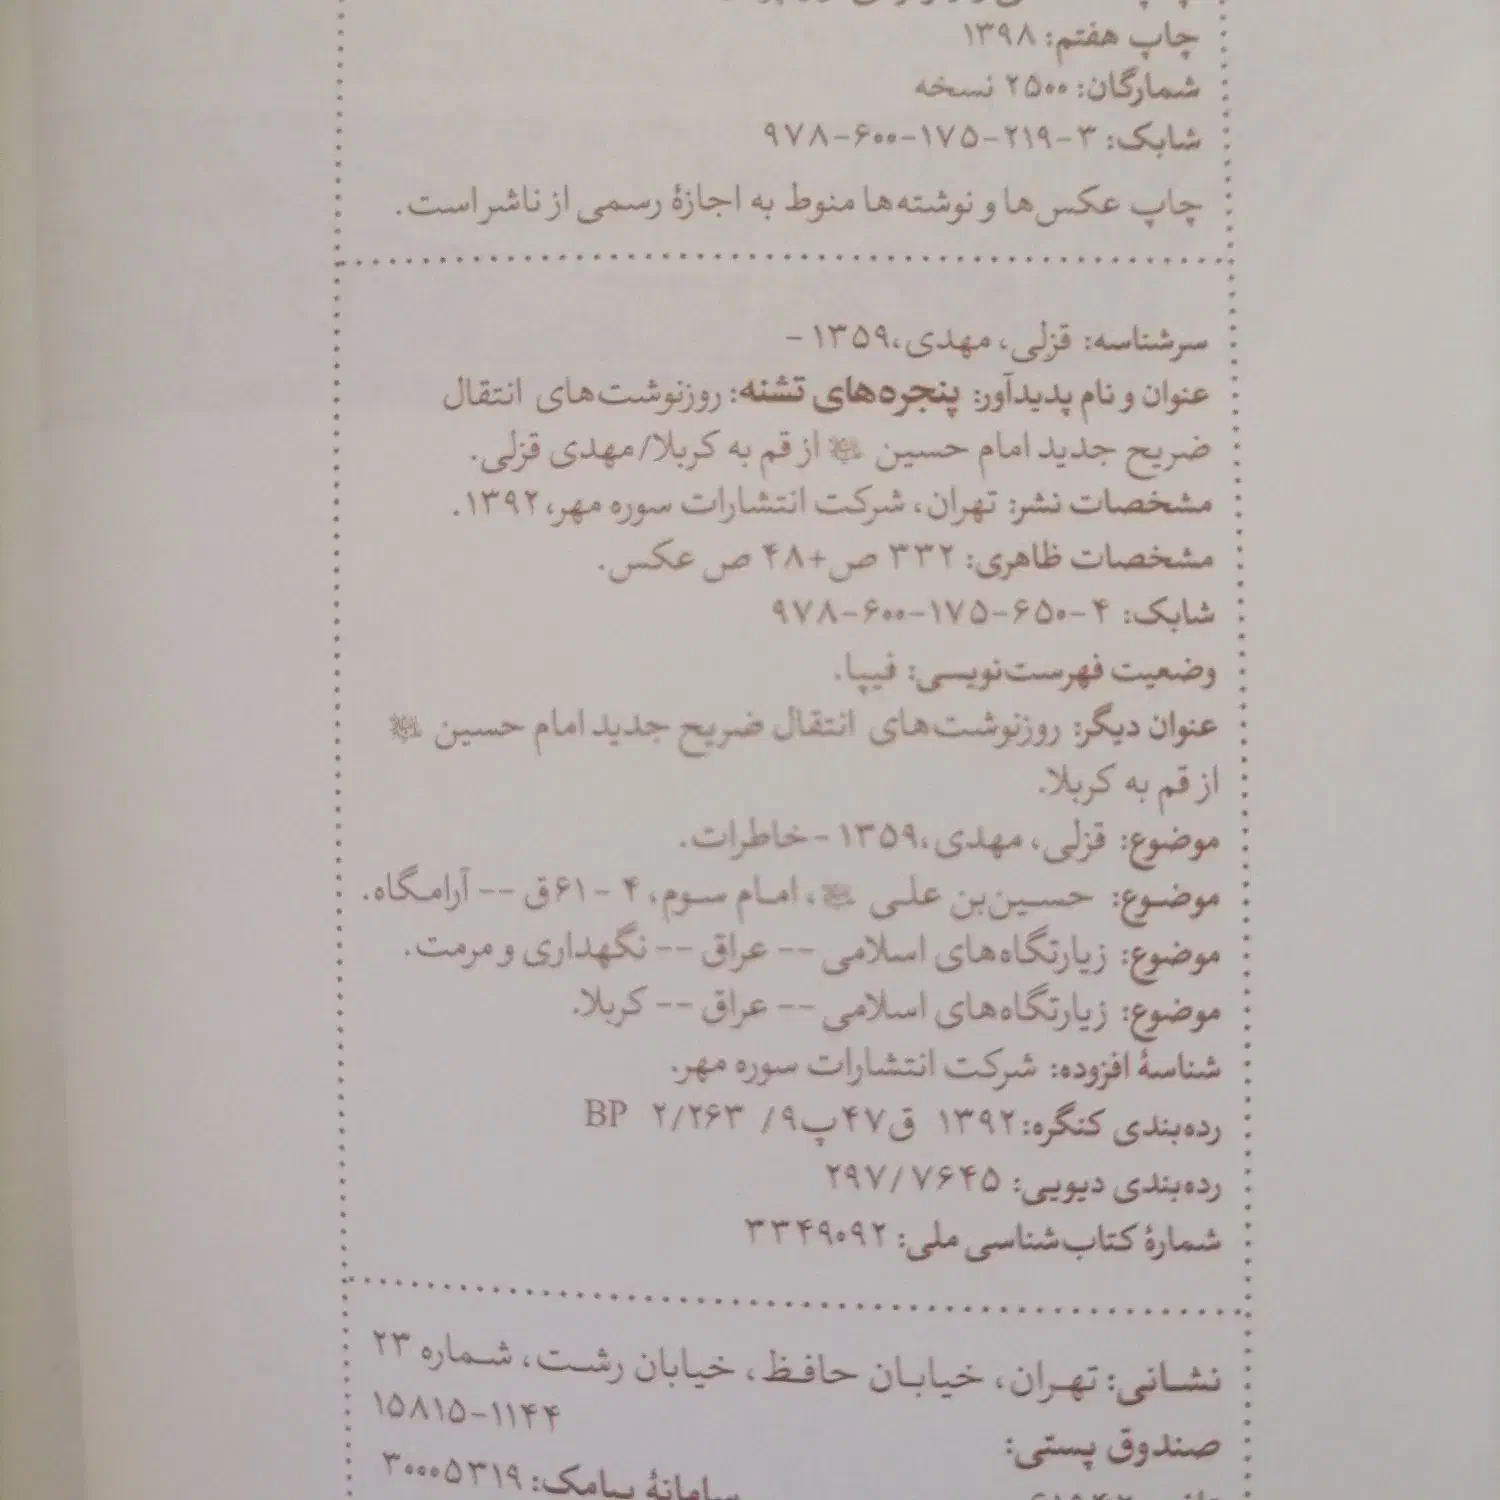 چاپ هفتم: ۱۳۹۸
شمارگان: ۲۵۰۰ نسخه
شابک: ۳-۲۱۹-۱۷۵-۶۰۰-۹۷۸
چاپ عکس‌ها و نوشته‌ها منوط به اجازهٔ رسمی از ناشر است.
سرشناسه: قزلی، مهدی،۱۳۵۹ -
عنوان و نام پدیدآور: پنجره‌های تشنه: روزنوشت‌های انتقال
ضریح جدید امام حسین از قم به کربلا/مهدی قزلی.
مشخصات نشر: تهران، شرکت انتشارات سوره مهر، ۱۳۹۲.
مشخصات ظاهری: ۳۳۲ ص+۴۸ ص عکس.
شابک: ۴-۶۵۰-۱۷۵-۶۰۰-۹۷۸
وضعیت فهرست‌نویسی: فیپا.
عنوان دیگر: روزنوشت‌های انتقال ضریح جدید امام حسین
از قم به کربلا.
موضوع: قزلی، مهدی،۱۳۵۹ -خاطرات.
موضوع: حسین‌بن علی ، امام سوم، ۴ -۶۱ق -- آرامگاه.
موضوع: زیارتگاه‌های اسلامی -- عراق -- نگهداری و مرمت.
موضوع: زیارتگاه‌های اسلامی -- عراق -- کربلا.
شناسهٔ افزوده: شرکت انتشارات سوره مهر.
رده‌بندی کنگره: ۱۳۹۲ ق۴۷پ۹/ ۲/۲۶۳ BP
رده‌بندی دیویی: ۲۹۷/۷۶۴۵
شمارهٔ کتاب‌شناسی ملی: ۳۳۴۹۰۹۲
نشانی: تهران، خیابان حافظ، خیابان رشت، شماره ۲۳
صندوق پستی: ۱۵۸۱۵-۱۱۴۴
سامانهٔ پیامک: ۳۰۰۰۵۳۱۹